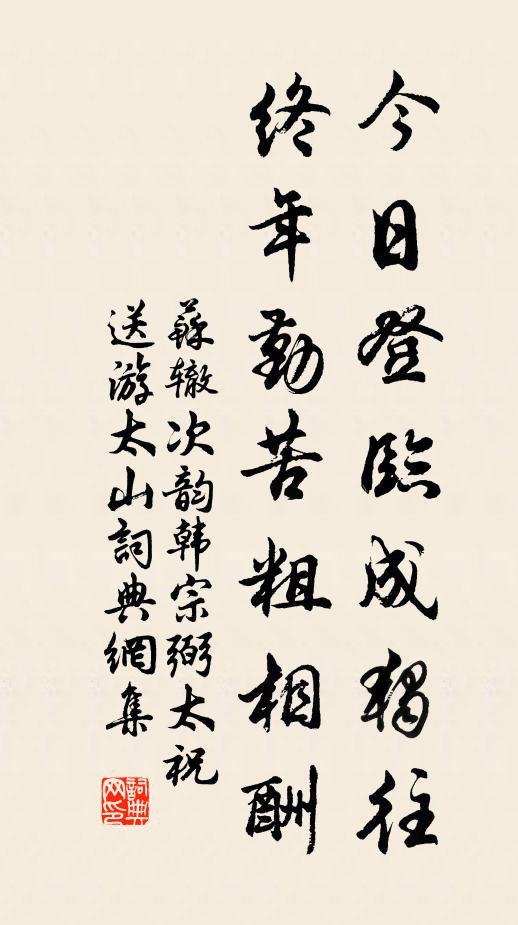 今日登臨成獨往
終年勤苦粗相酬
蘇辙次韵韩宗弼太祝
送游太山詞典網集
詞典
网印